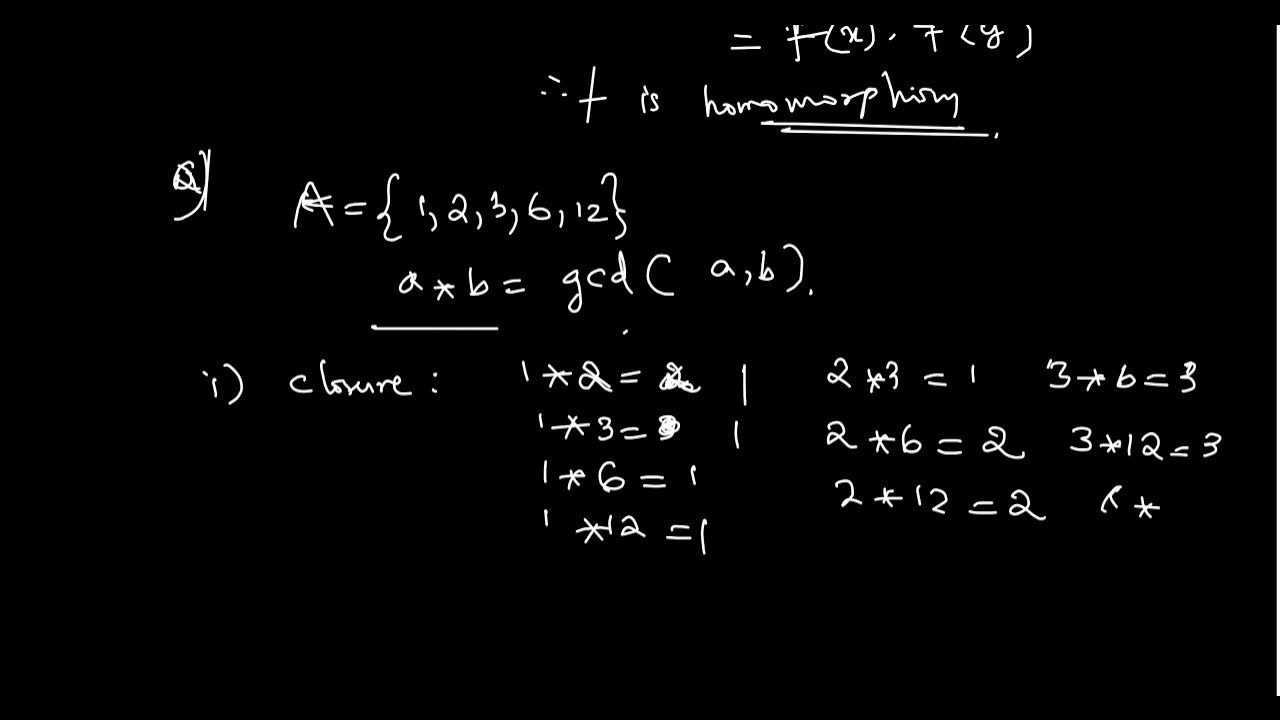 = f(x) . f(y)
∴ f is homomorphism.
Q)
A = { 1, 2, 3, 6, 12}
a * b = gcd( a, b).
i) closure : 1 * 2 = 1 2 * 3 = 1 3 * 6 = 3
1 * 3 = 1 2 * 6 = 2 3 * 12 = 3
1 * 6 = 1 2 * 12 = 2 6 *
1 * 12 = 1